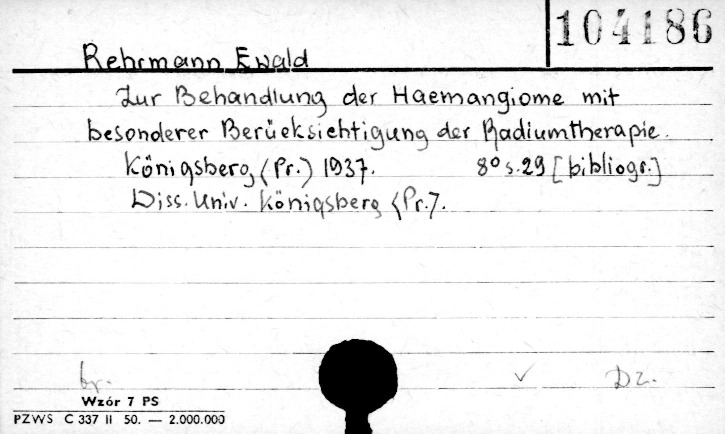 104186
Rehrmann Ewald
Zur Behandlung der Haemangiome mit
besonderer Berücksichtigung der Radiumtherapie.
Königsberg (Pr.) 1937. 8° s.29 [bibliogr.]
Diss. Univ. Königsberg (Pr.).
br. Dz.
Wzór 7 PS
PZWS C 337 II 50. — 2.000.000